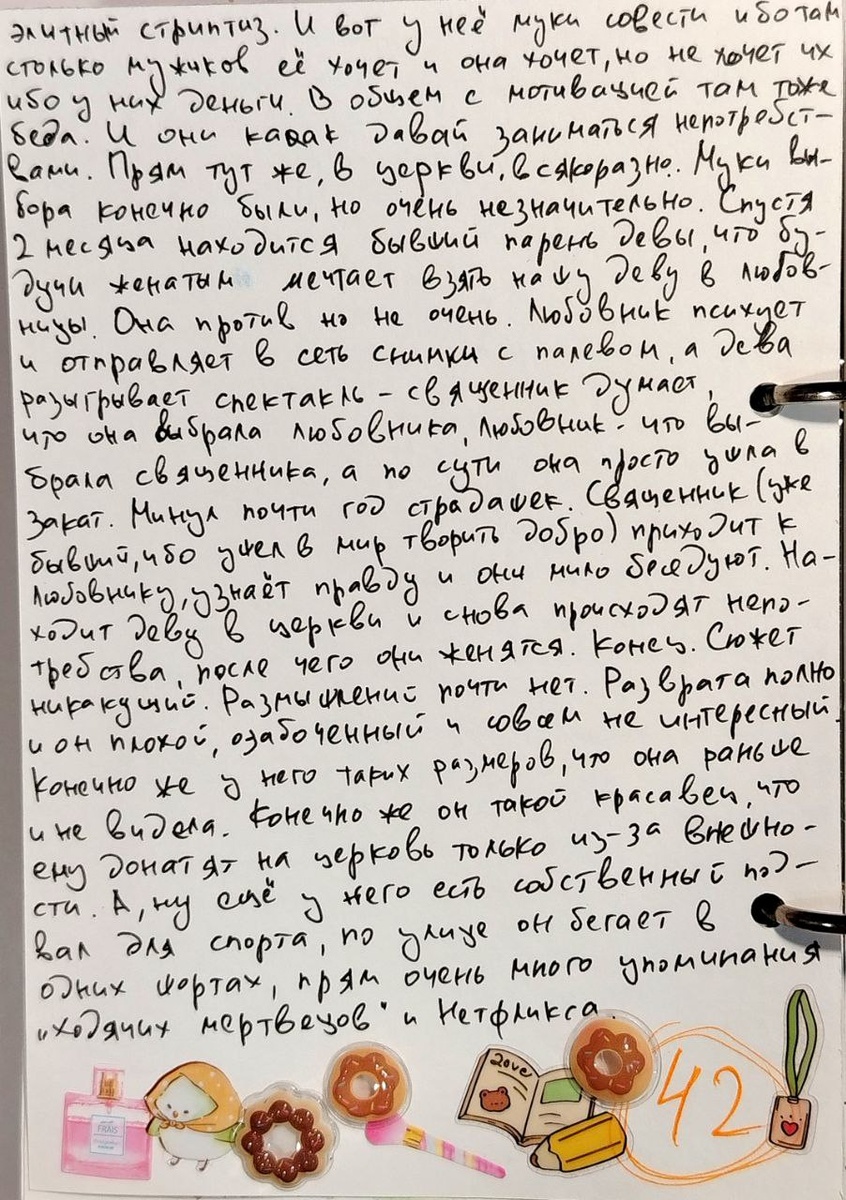 элитный стриптиз. И вот у неё муки совести ибо там
столько мужиков её хочет и она хочет, но не хочет их
ибо у них деньги. В общем с мотивацией там тоже
беда. И они каааак давай заниматься непотребст-
вами. Прям тут же, в церкви, всякоразно. Муки вы-
бора конечно были, но очень незначительно. Спустя
2 месяца находится бывший парень девы, что бу-
дучи женатым мечтает взять нашу деву в любов-
ницы. Она против но не очень. Любовник психует
и отправляет в сеть снимки с палевом, а дева
разыгрывает спектакль - священник думает,
что она выбрала любовника, любовник - что вы-
брала священника, а по сути она просто ушла в
закат. Минул почти год страдашек. Священник (уже
бывший, ибо ушел в мир творить добро) приходит к
любовнику, узнаёт правду и они мило беседуют. На-
ходит деву в церкви и снова происходят непо-
требства, после чего они женятся. Конец. Сюжет
никакущий. Размышлений почти нет. Разврата полно
и он плохой, озабоченный и совсем не интересный.
Конечно же у него таких размеров, что она раньше
и не видела. Конечно же он такой красавец, что
ему донатят на церковь только из-за внешно-
сти. А, ну ещё у него есть собственный под-
вал для спорта, по улице он бегает в
одних шортах, прям очень много упоминания
„Ходячих мертвецов" и Нетфликса.
Love
FRAIS
42